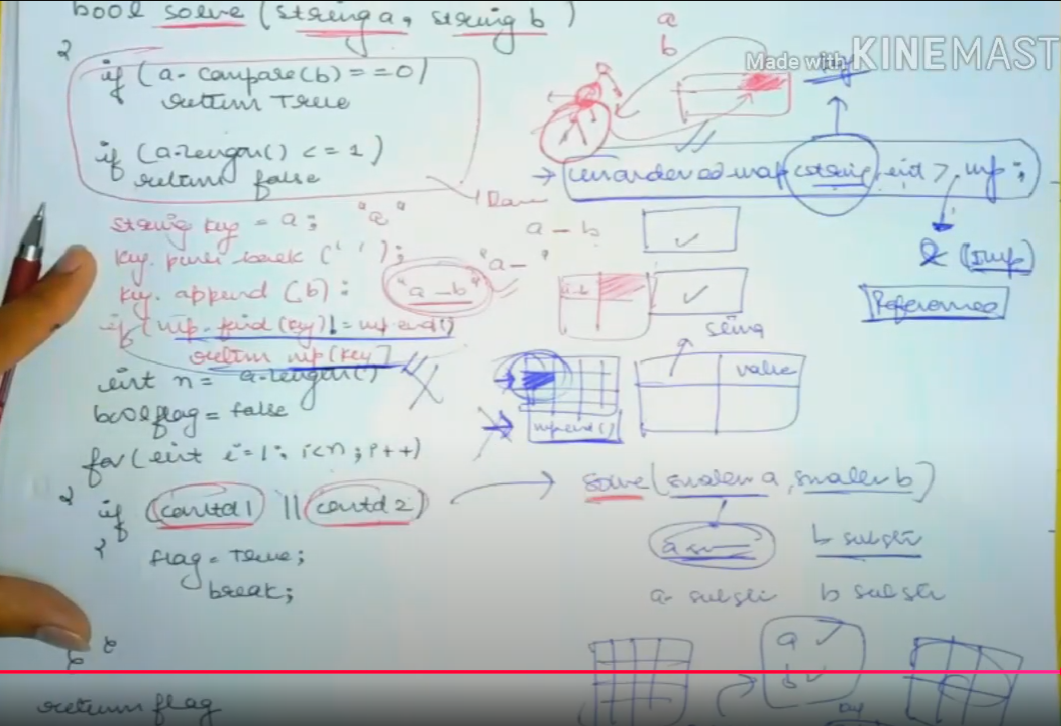 bool solve (string a, string b)
{
if (a. compare(b) == 0)
return True
if (a.length() <= 1)
return false
string key = a; "a"
key. push back (' ');
"a-"
key. append (b);
"a-b"
if (mp. find (key) != mp end()
return mp[key]
int n = a.length()
bool flag = false
for (int i=1; i<n; i++)
{
if (contd 1 || contd 2)
{
flag = True;
break;
return flag
a
b
Made with KINEMAST
→ unordered-map <string, int> mp;
& (Imp)
References
a - b
a-b
string
value
mp end()
solve (smaller a, smaller b)
b substr
a substr b substr
a
b
key